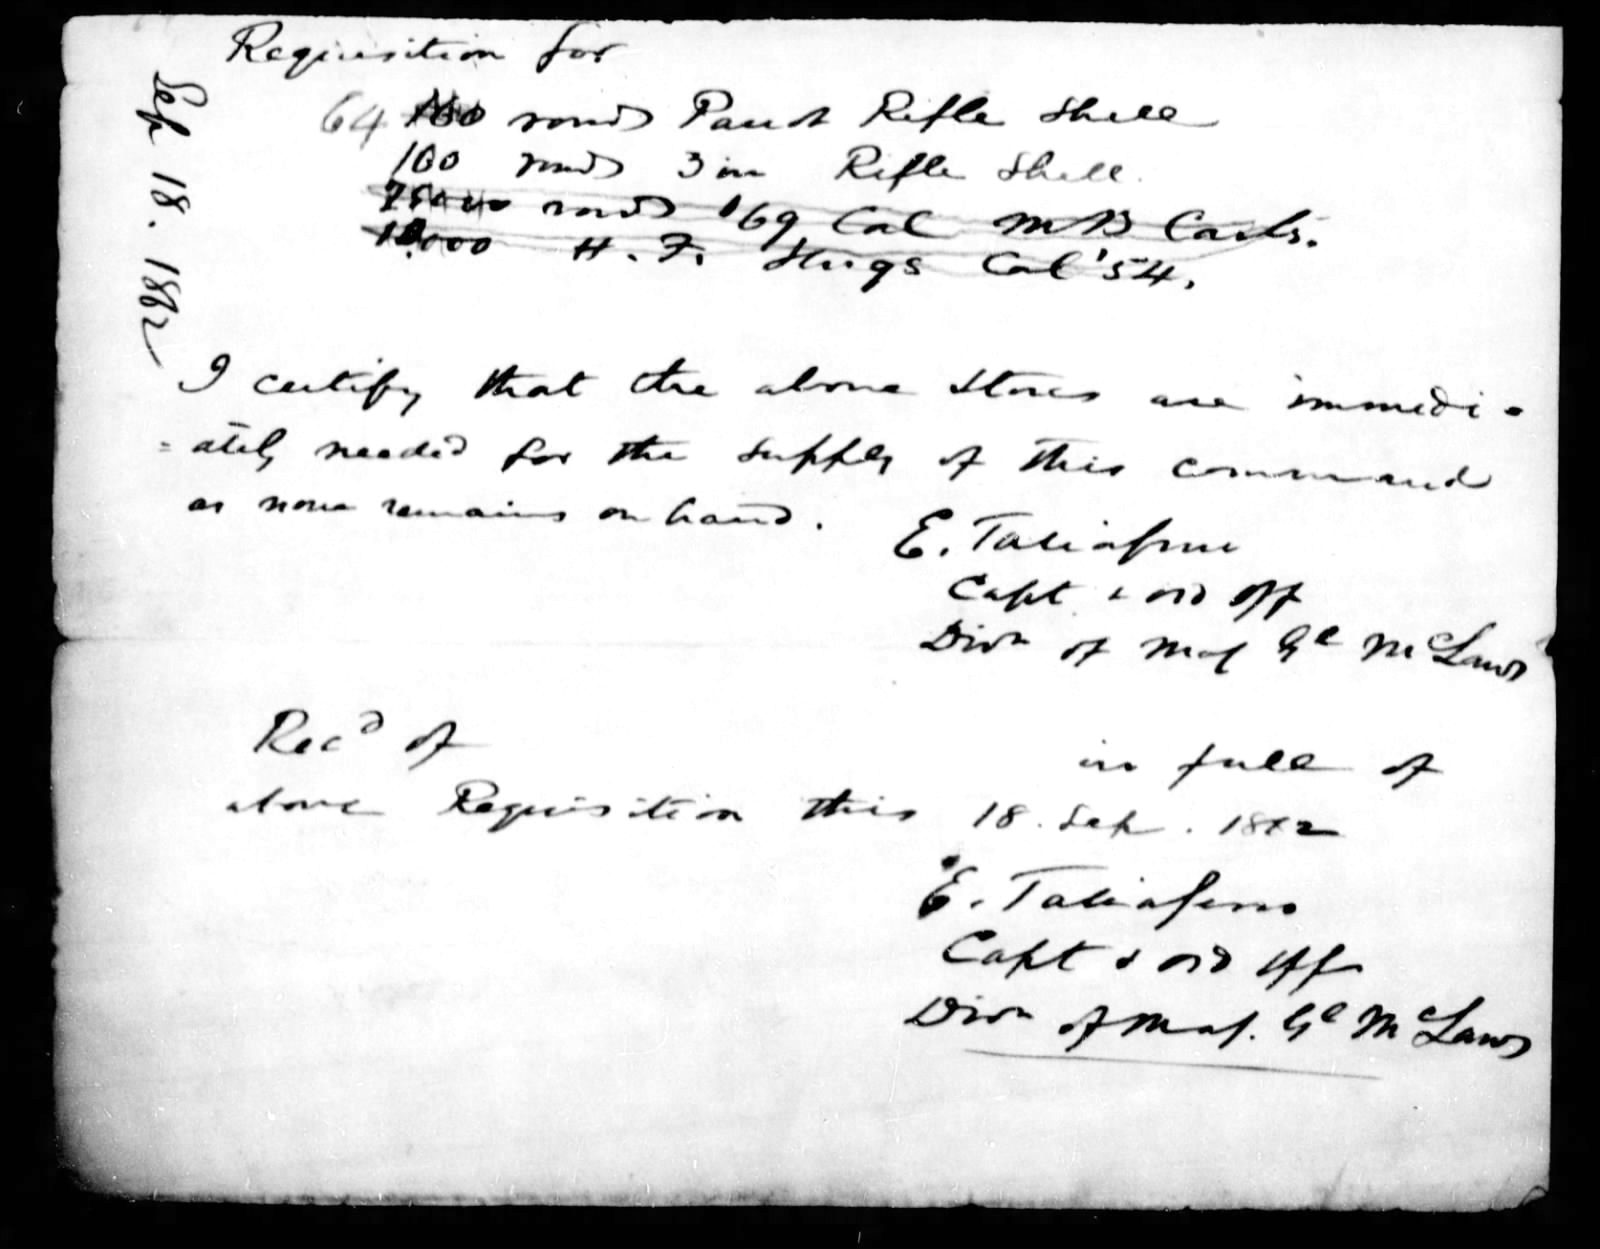 Sep 18. 1862
Requisition for
64 100 rounds Parrot Rifle Shell
100 rounds 3 in Rifle Shell.
rounds '69 Cal M B Carts.
10,000 H. F. Slugs Cal '54.
I certify that the above Stores are immedi-
=ately needed for the supply of this command
as none remains on hand.
E. Taliaferro
Capt & ord Off
Divn of Maj Gl McLaws
Recd of in full of
above Requisition this 18. Sep. 1862
E. Taliaferro
Capt & ord Off
Divn of Maj. Gl McLaws